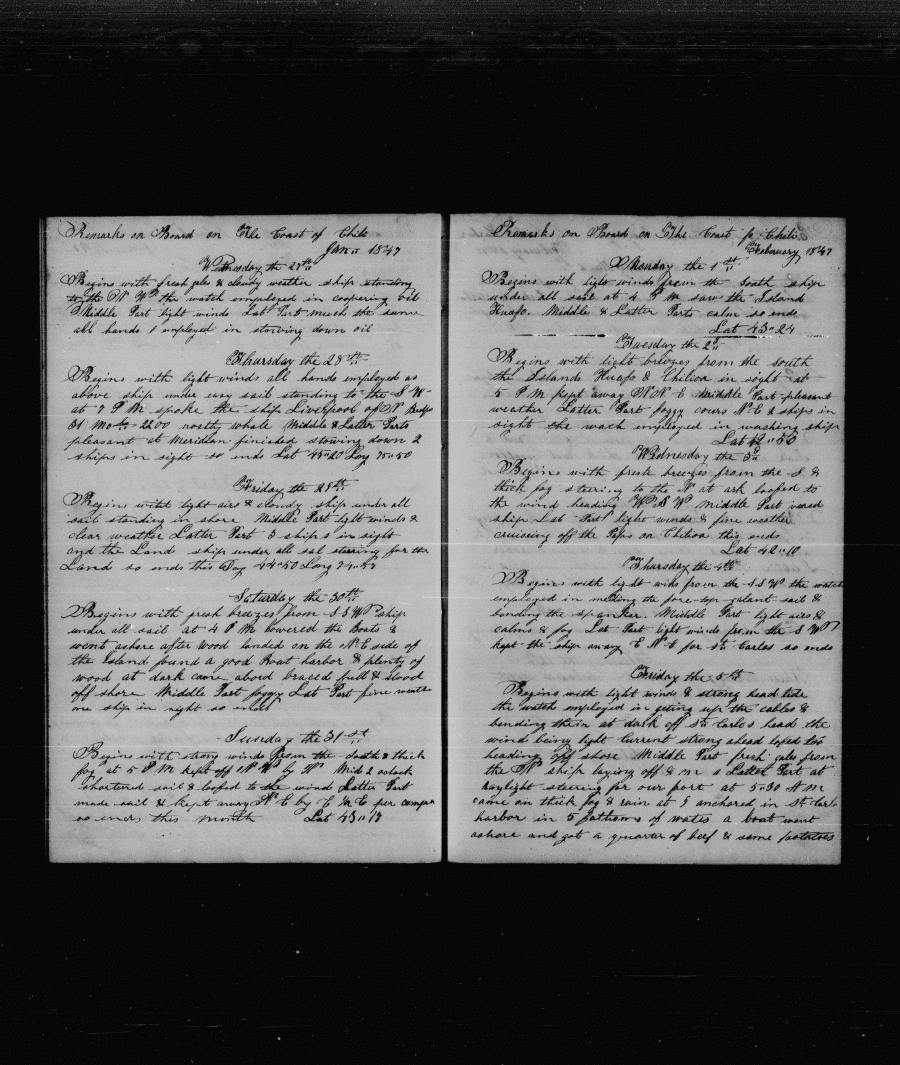 Remarks on Board on The Coast of Chili
Jan 1847
Wednesday the 27th
Begins with fresh gales & cloudy weather ship standing
to the N W the watch employed in coopering oil
Middle Part light winds Lat Part much the same
all hands employed in stowing down oil
Thursday the 28th
Begins with light winds all hands employed as
above ship under easy sail standing to the S W
at 7 P M spoke the ship Liverpool of N Bedfo
31 Mo 2200 nostly whale Middle & Latter Parts
pleasant at Meridian finished stowing down 2
ships in sight so ends Lat 45"20 Log 75"50
Friday the 29th
Begins with light airs & cloudy ship under all
sail standing in shore Middle Part light winds &
clear weather Latter Part 3 ships in sight
and the Land ship under all sal steering for the
Land so ends this Day 44"50 Long 74"57
Saturday the 30th
Begins with fresh breezes from S S W ship
under all sail at 4 P M lowered the Boats &
went ashore after wood landed on the N E side of
the Island found a good Boat harbor & plenty of
wood at dark came abord braced full & stood
off shore Middle Part foggy Lat Part fine weathe
one ship in sight so ends
Sunday the 31st
Begins with strong winds from the South & thick
fog at 5 P M kept off N W by W Mid 2 oclock
shortened sail & loofed to the wind Latter Part
made sail & kept away N E by E M E per compa
so ends this month Lat 43"17
Remarks on Board on The Coast of Chili
February 1847
Monday the 1st
Begins with light winds from the South ship
under all sail at 4 P M saw the Island
Huafo. Middle & Latter Parts calm so ends
Lat 43"24
Tuesday the 2d
Begins with light brezes from the south
the Islands Huafo & Chiloa in sight at
5 P M kept away N N E Middle Part pleasant
weather Latter Part foggy cours N E 2 ships in
sight the wach employed in washing ship
Lat 42"50
Wednesday the 3d
Begins with fresh breezes from the S &
thick fog steering to the N at ark loofed to
the wind heading W S W middle Part vared
ship Lat Part light winds & fine weather
cruising off the Paps on Chiloa this ends
Lat 42"10
Thursday the 4th
Begins with light winds from the S S W the watch
employed in mending the fore-top-galant sail &
bending the spanker. Middle Part light airs &
calms & fog Lat Part light winds from the S W
kept the ship away E N E for St Carlos so ends
Friday the 5th
Begins with light winds & strong head tide
the watch employed in geting up the cables &
bending them at dark off St Carlos head the
wind being light Current strong ahead lofed too
heading off shore Middle Part fresh gales from
the N ship laying off & on a Latter Part at
daylight steering for our port at 5-30 A M
came on thick fog & rain at 9 anchored in St Carls
harbor in 5 fathoms of water a boat went
ashore and got a quarter of beef & some potatoes